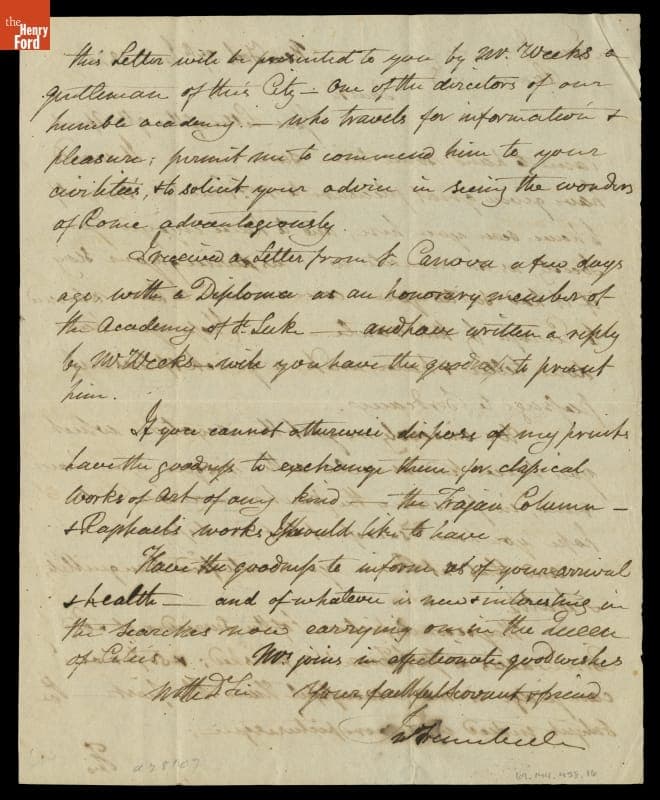 the
Henry
Ford
this Letter will be presented to you by Mr. Weeks a
gentleman of this City — One of the directors of our
humble academy — who travels for information &
pleasure; permit me to commend him to your
civilities, & to solicit your advice in seeing the wonders
of Rome advantageously.
I received a Letter from Canova a few days
ago with a Diploma as an honorary member of
the Academy of St. Luke — and have written a reply
by Mr. Weeks will you have the goodness to present
him.
If you cannot otherwise dispose of my prints
have the goodness to exchange them for classical
Works of Art of any kind — the Trajan Column —
& Raphael's works I should like to have
Have the goodness to inform us of your arrival
& health — and of whatever is new & interesting in
the searches now carrying on in the Queen
of Cities Mrs joins in affectionate good wishes
with Dr Sir Your faithful servant & friend
Jn Trumbull